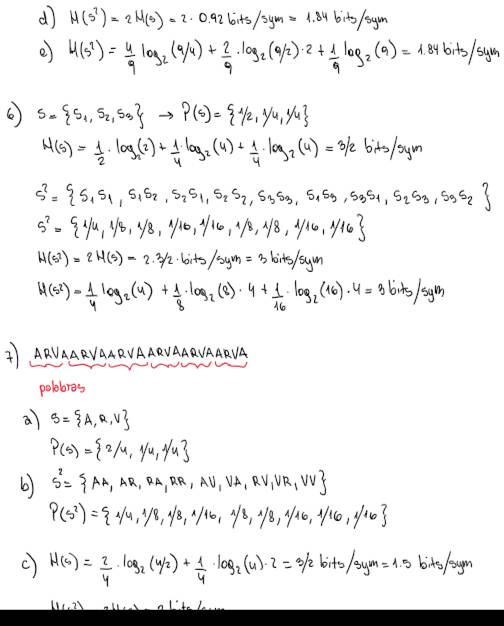 d) H(s²) = 2H(s) = 2·0.92 bits/sym = 1.84 bits/sym
e) H(s²) = 4/9 log₂(9/4) + 2/9 · log₂(9/2)·2 + 1/9 log₂(9) = 1.84 bits/sym
6) S = {S₁, S₂, S₃} → P(s) = {1/2, 1/4, 1/4}
H(s) = 1/2 · log₂(2) + 1/4 · log₂(4) + 1/4 · log₂(4) = 3/2 bits/sym
S² = {S₁S₁, S₁S₂, S₂S₁, S₂S₂, S₃S₃, S₁S₃, S₃S₁, S₂S₃, S₃S₂}
S² = {1/4, 1/8, 1/8, 1/16, 1/16, 1/8, 1/8, 1/16, 1/16}
H(s²) = 2H(s) = 2·3/2·bits/sym = 3 bits/sym
H(s²) = 1/4 log₂(4) + 1/8 · log₂(8)·4 + 1/16 · log₂(16)·4 = 3 bits/sym
7) ARVAARVAARVAARVAARVAARVA
palabras
a) S = {A, R, V}
P(s) = {2/4, 1/4, 1/4}
b) S² = {AA, AR, RA, RR, AV, VA, RV, VR, VV}
P(s²) = {1/4, 1/8, 1/8, 1/16, 1/8, 1/8, 1/16, 1/16, 1/16}
c) H(s) = 2/4 · log₂(4/2) + 1/4 · log₂(4)·2 = 3/2 bits/sym = 1.5 bits/sym